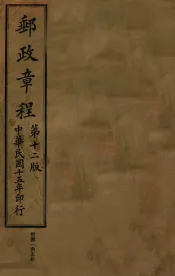 郵政章程
第十二版
中華民國十五年印行